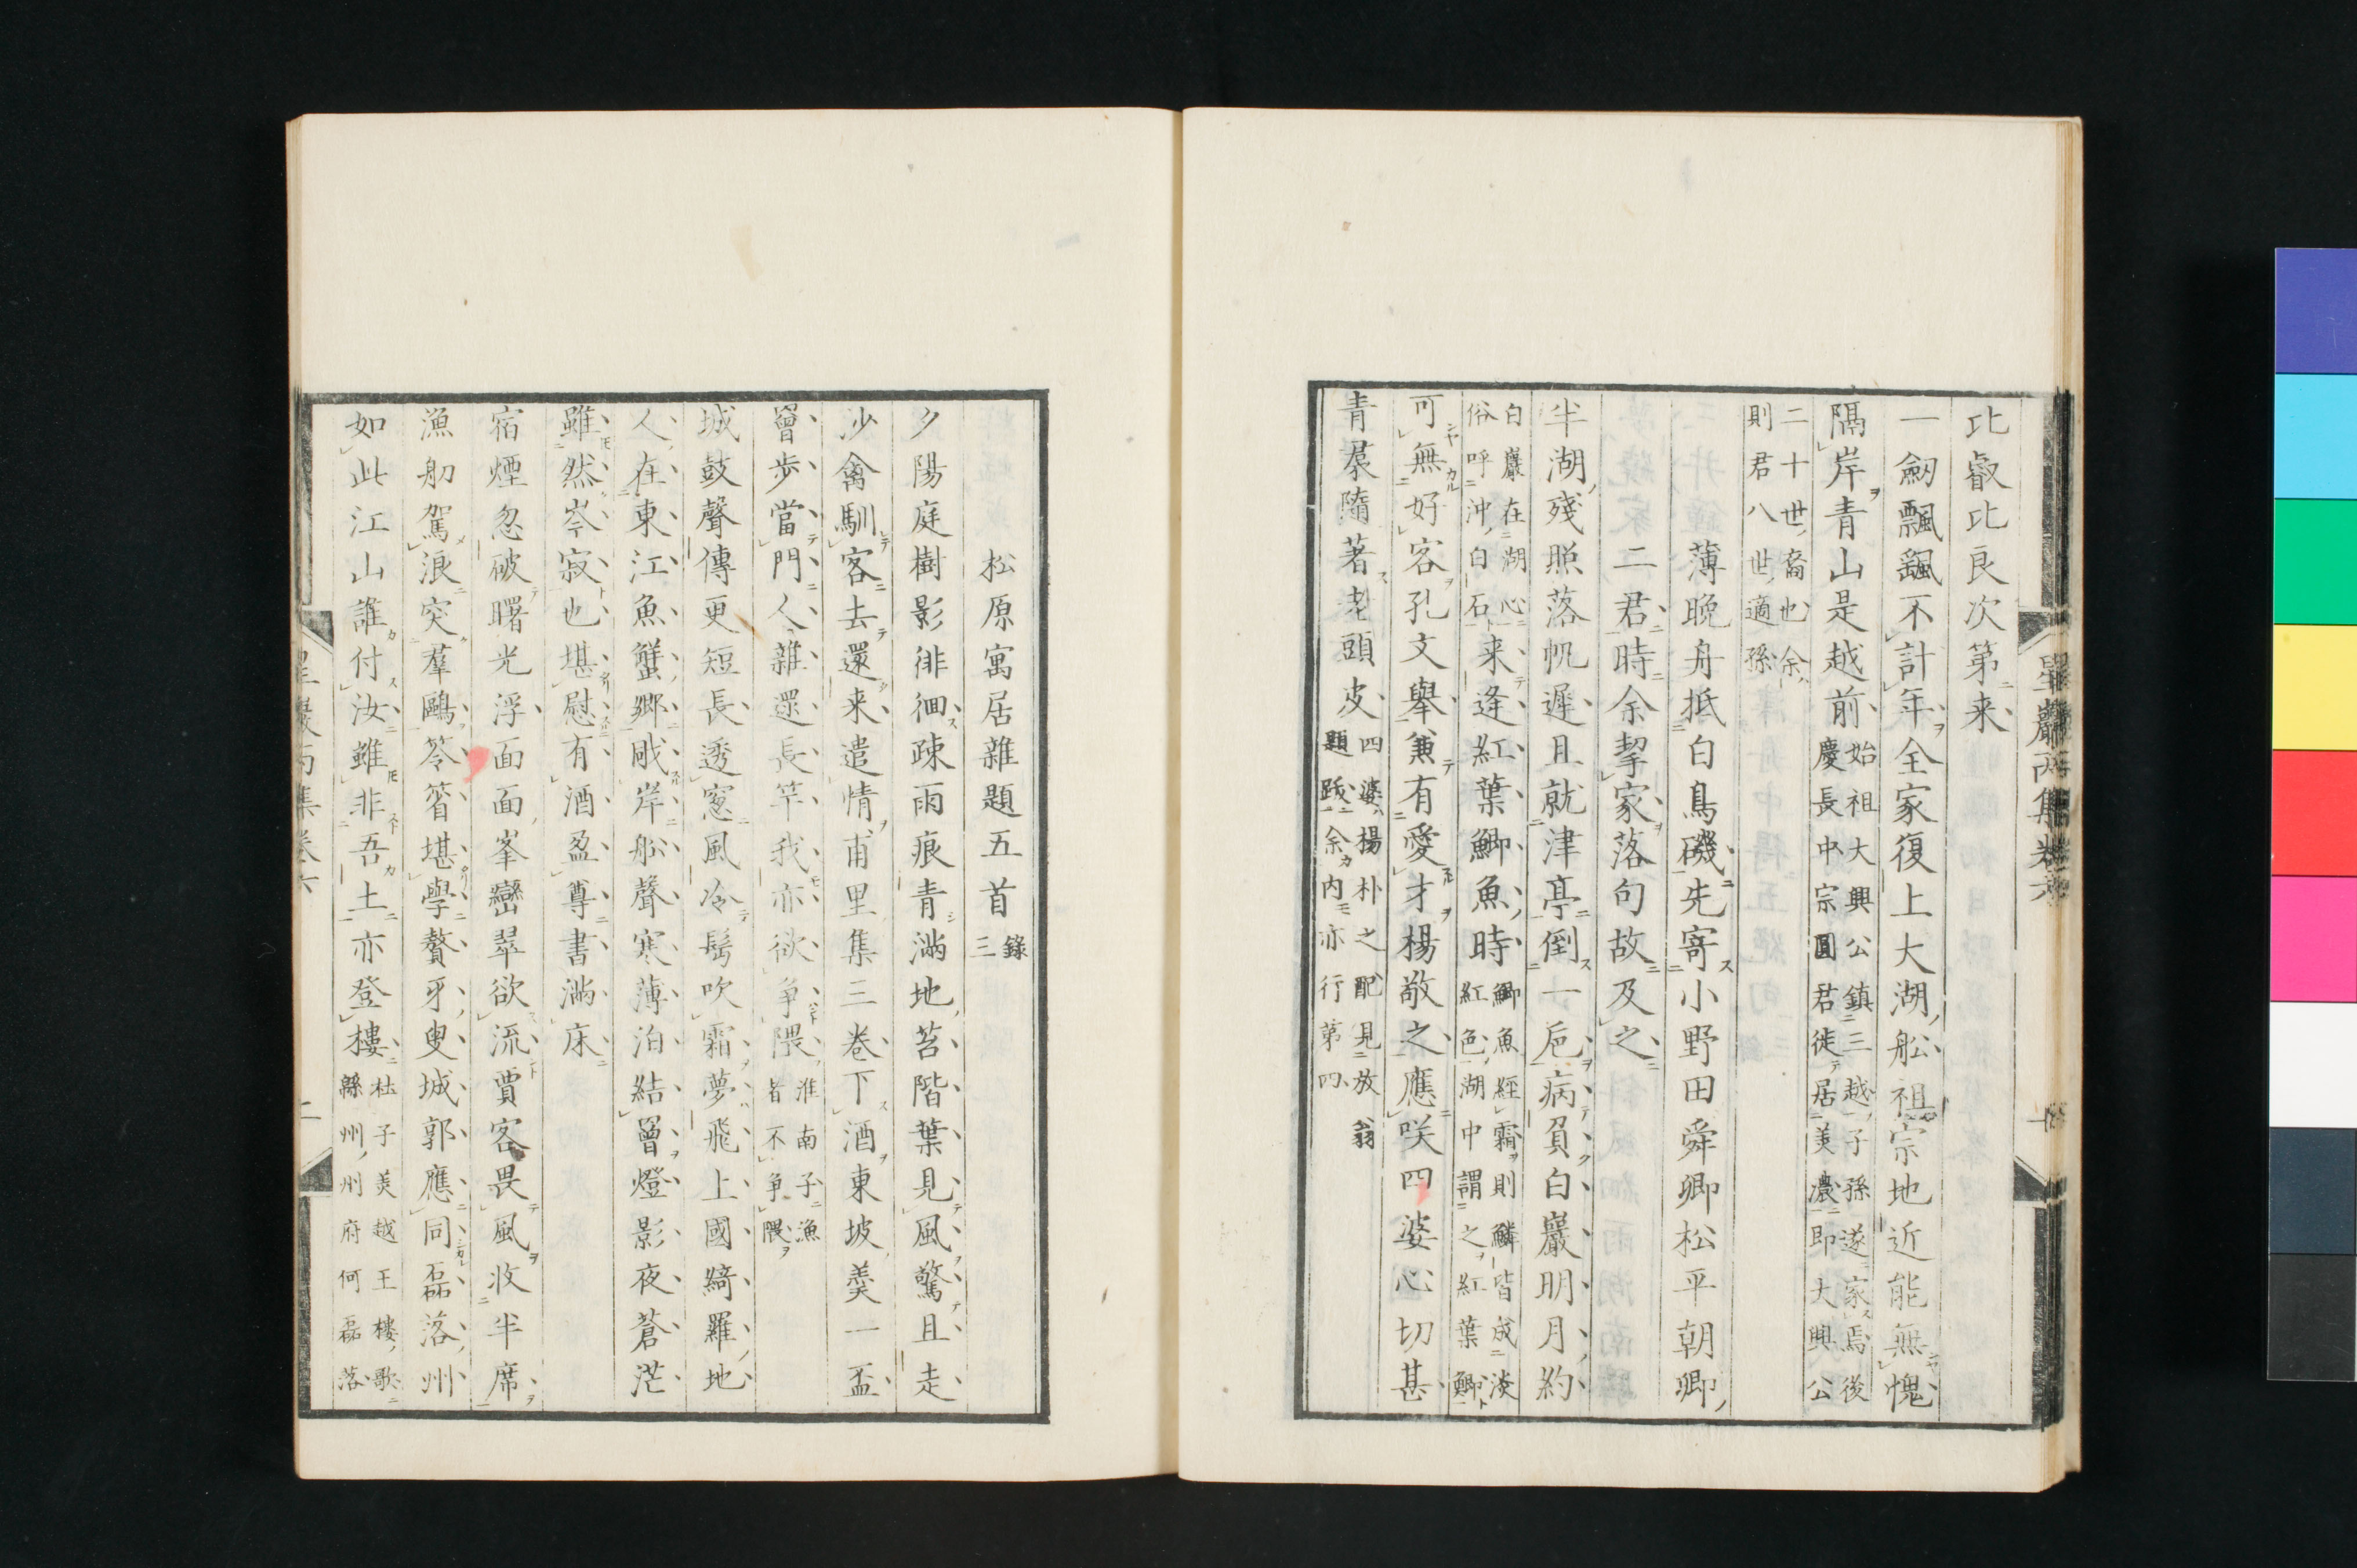 比叡比良次第来
一劒飄飄不計年全家復上大湖船祖宗地近能無愧
隔岸青山是越前
始祖大興公鎮三越子孫遂家焉後
慶長中宗圓君徙居美濃即大興公
二十世裔也余
則君八世適孫
薄晩舟抵白鳥磯先寄小野田舜卿松平朝卿
二君時余挈家落句故及之
半湖殘照落帆遲且就津亭倒一巵病負白巖明月約
白巖在湖心
俗呼沖白石
来逢紅葉鯽魚時
鯽魚經霜則鱗皆成淡
紅色湖中謂之紅葉鯽
可無好客孔文擧兼有愛才楊敬之應咲四婆心切甚
青裠隨著老頭皮
四婆楊朴之配見放翁
題跋余内亦行第四
星巖丙集卷六
松原寓居雜題五首
錄
三
夕陽庭樹影徘徊疎雨痕青滿地苔階葉見風驚且走
沙禽馴客去還来遣情甫里集三卷下酒東坡羹一盃
曾步當門人雜還長竿我亦欲爭隈
淮南子漁
者不爭隈
城鼓聲傳更短長透窓風冷髩吹霜夢飛上國綺羅地
人在東江魚蟹鄉戙岸船聲寒薄泊結罾燈影夜蒼茫
雖然岑寂也堪慰有酒盈尊書滿床
宿煙忽破曙光浮面面峯巒翠欲流賈客畏風收半席
漁舠駕浪突羣鷗笭箵堪學聱牙叟城郭應同磊落州
如此江山誰付汝雖非吾土亦登樓
杜子美越王樓歌
緜州州府何磊落
星巖丙集卷六
二